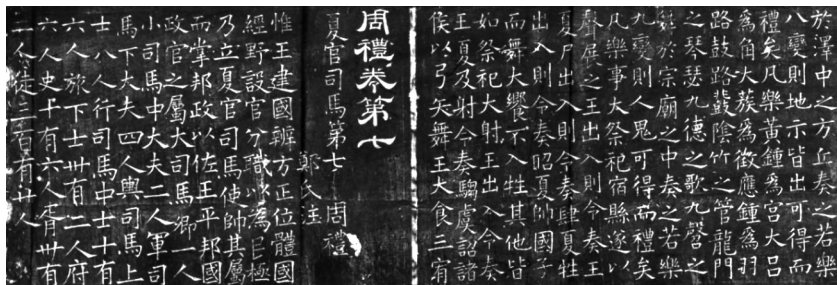 於澤中之方丘奏之若樂
八變則地示皆出可得而
禮矣凡樂黃鍾爲宮大呂
爲角大蔟爲徵應鍾爲羽
路鼓路鼗陰竹之管龍門
之琴瑟九德之歌九㲈之
舞於宗廟之中奏之若樂
九變則人鬼可得而禮矣
凡樂事大祭祀宿縣遂以
聲展之王出入則令奏王
夏尸出入則令奏肆夏牲
出入則令奏昭夏帥國子
而舞大饗不入牲其他皆
如祭祀大射王出入令奏
王夏及射令奏騶虞詔諸
侯以弓矢舞王大食三宥
周禮卷第七
夏官司馬第七 周禮
鄭氏注
惟王建國辨方正位體國
經野設官分職以爲民極
乃立夏官司馬使帥其屬
而掌邦政以佐王平邦國
政官之屬大司馬卿一人
小司馬中大夫二人軍司
馬下大夫四人輿司馬上
士八人行司馬中士十有
六人旅下士卅有二人府
六人史十有六人胥卅有
二人徒三百有廿人